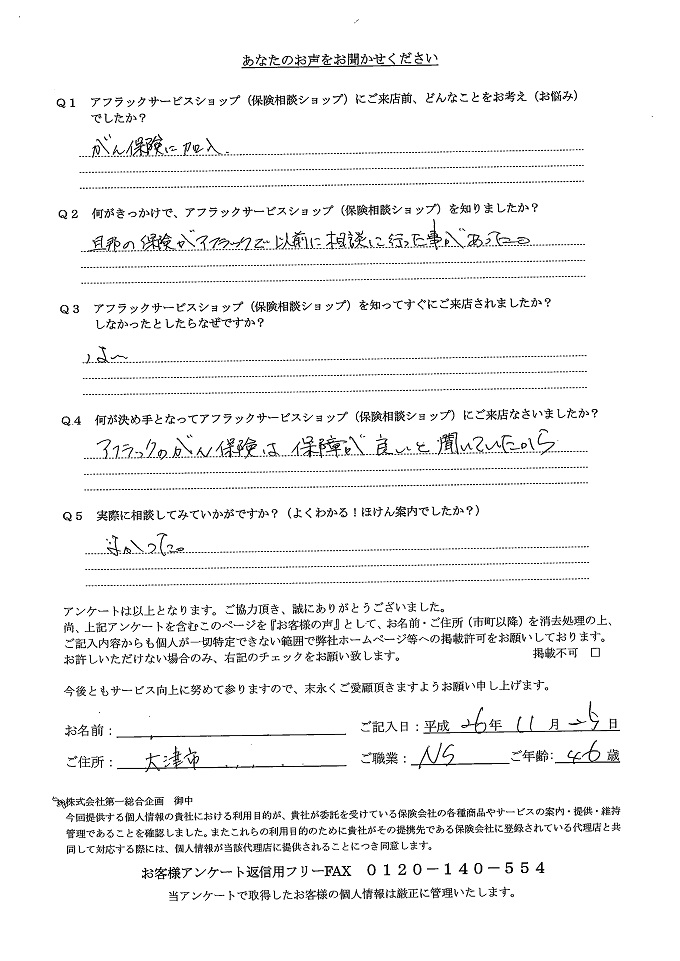 あなたのお声をお聞かせください
Q1 アフラックサービスショップ（保険相談ショップ）にご来店前、どんなことをお考え（お悩み）
でしたか？
がん保険に加入.
Q2 何がきっかけで、アフラックサービスショップ（保険相談ショップ）を知りましたか？
旦那の保険がアフラックで以前に相談に行った事があった。
Q3 アフラックサービスショップ（保険相談ショップ）を知ってすぐにご来店されましたか？
しなかったとしたらなぜですか？
はい
Q.4 何が決め手となってアフラックサービスショップ（保険相談ショップ）にご来店なさいましたか？
アフラックのがん保険は保障が良いと聞いていたから
Q5 実際に相談してみていかがですか？（よくわかる！ほけん案内でしたか？）
よかった。
アンケートは以上となります。ご協力頂き、誠にありがとうございました。
尚、上記アンケートを含むこのページを『お客様の声』として、お名前・ご住所（市町以降）を消去処理の上、
ご記入内容からも個人が一切特定できない範囲で弊社ホームページ等への掲載許可をお願いしております。
お許しいただけない場合のみ、右記のチェックをお願い致します。 掲載不可 □
今後ともサービス向上に努めて参りますので、末永くご愛顧頂きますようお願い申し上げます。
お名前： ご記入日：平成 26年 11月 25日
ご住所： 大津市 ご職業： NS ご年齢：46歳
株式会社第一総合企画 御中
今回提供する個人情報の貴社における利用目的が、貴社が委託を受けている保険会社の各種商品やサービスの案内・提供・維持
管理であることを確認しました。またこれらの利用目的のために貴社がその提携先である保険会社に登録されている代理店と共
同して対応する際には、個人情報が当該代理店に提供されることにつき同意します。
お客様アンケート返信用フリーFAX 0120－140－554
当アンケートで取得したお客様の個人情報は厳正に管理いたします。